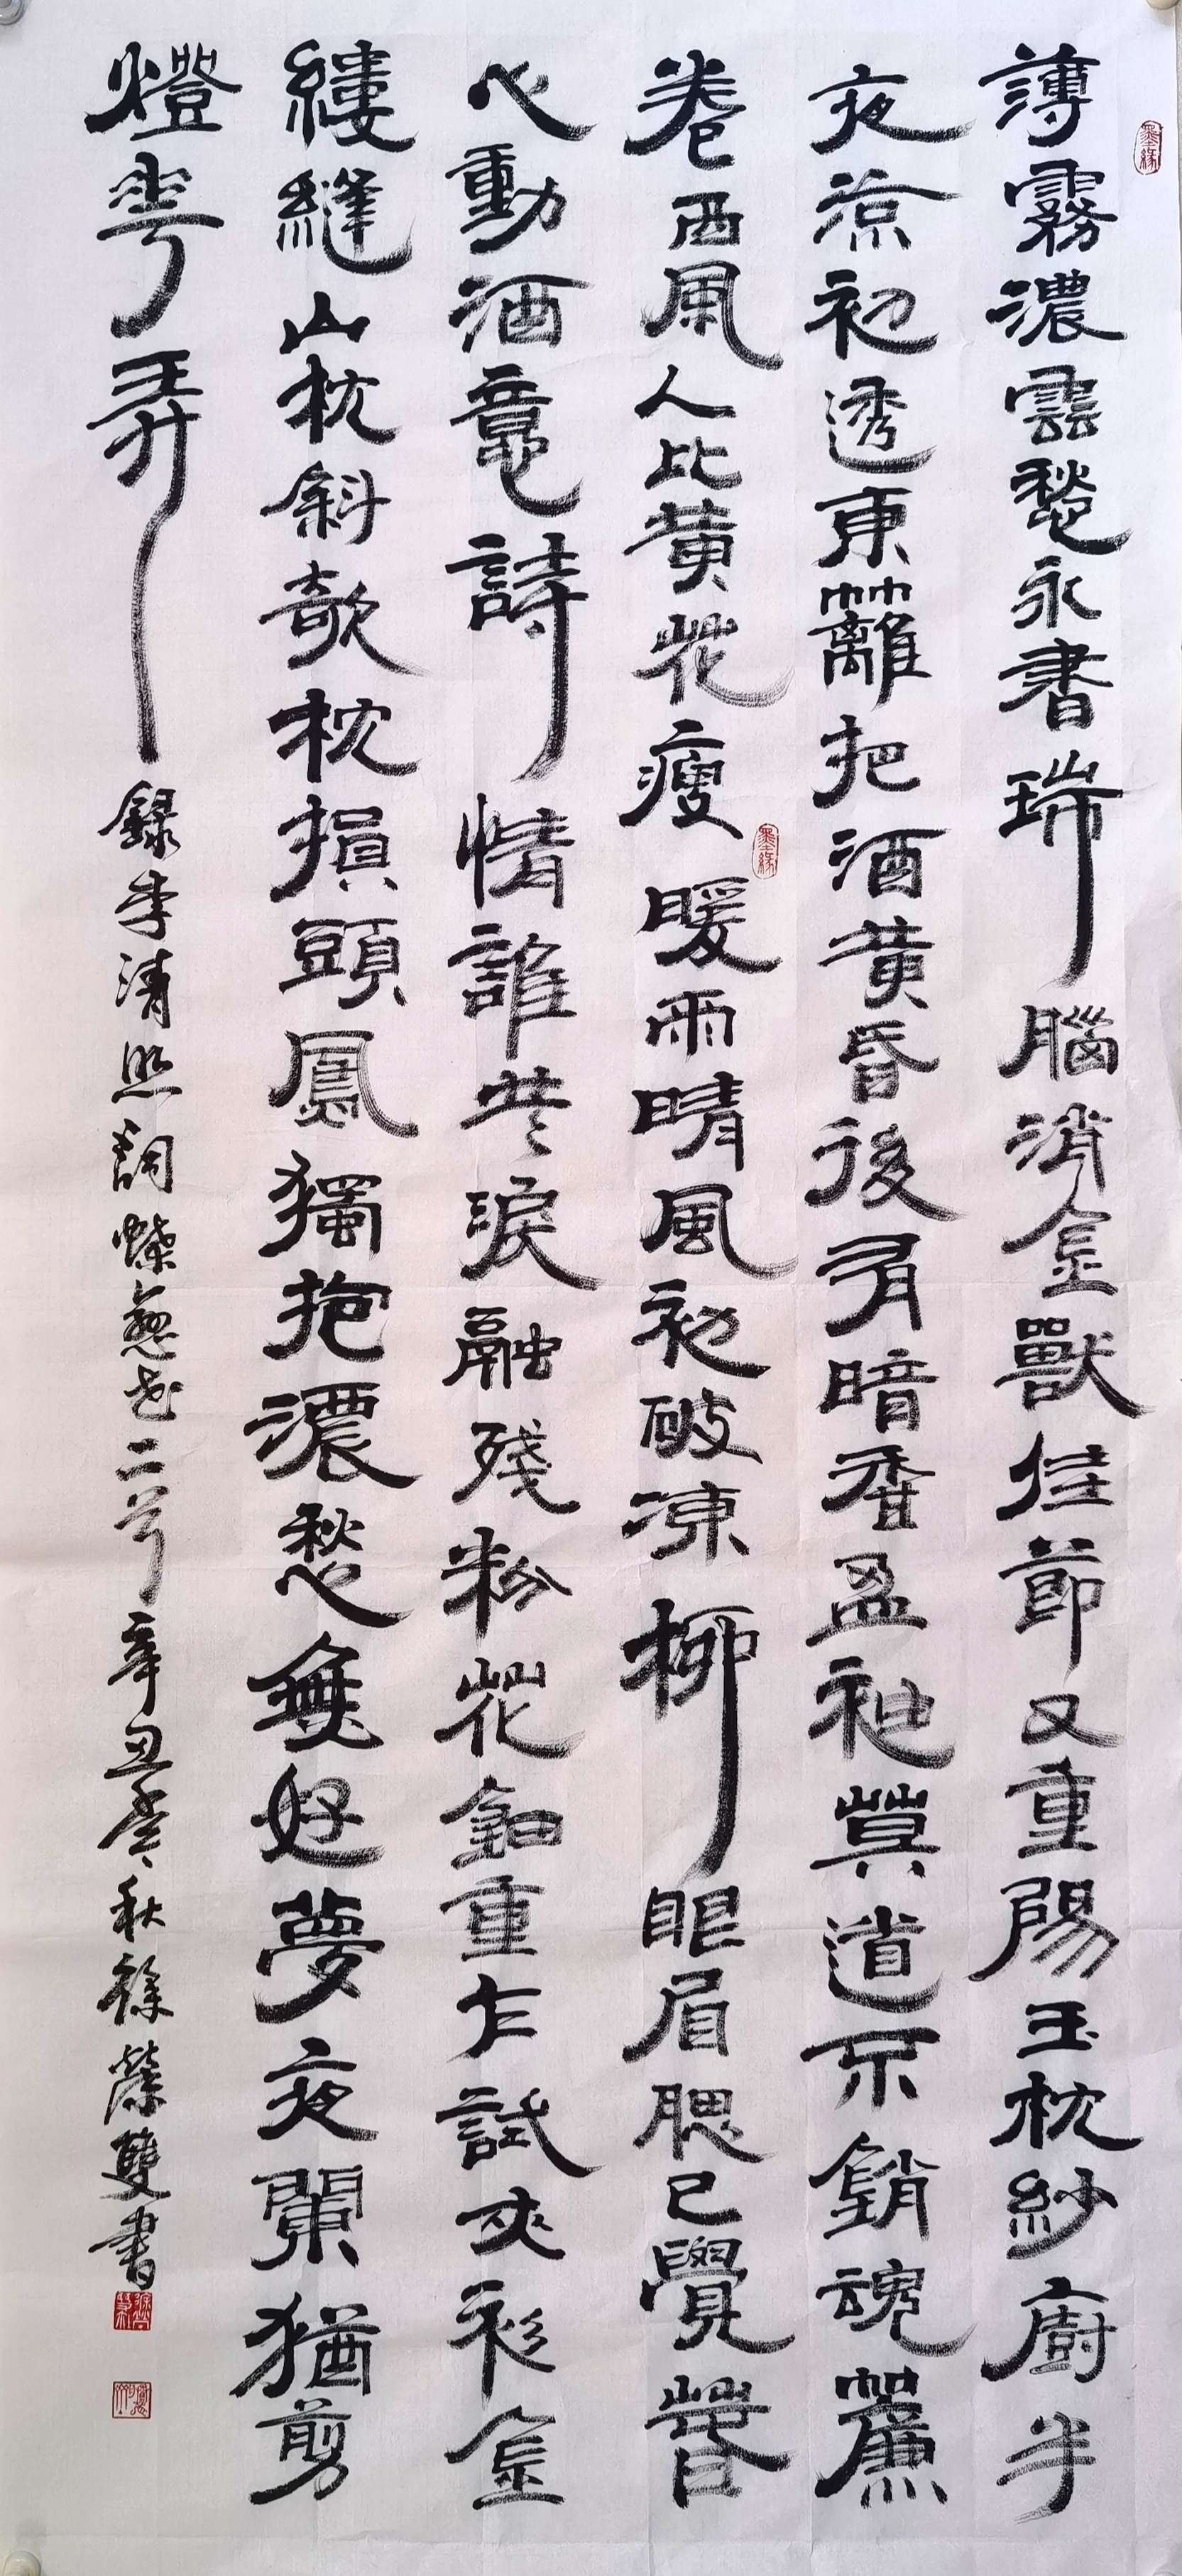 薄霧濃雲愁永晝瑞腦消金獸佳節又重陽玉枕紗廚半
夜涼初透東籬把酒黃昏後有暗香盈袖莫道不銷魂簾
卷西風人比黃花瘦暖雨晴風初破凍柳眼眉腮已覺春
心動酒意詩情誰共淚融殘粉花鈿重乍試夾衫金
縷縫山枕斜欹枕損頭鳳獨抱濃愁無好夢夜闌猶剪
燈花弄
錄李清照詞蝶戀花二首辛丑年秋徐榮雙書
墨緣
墨緣